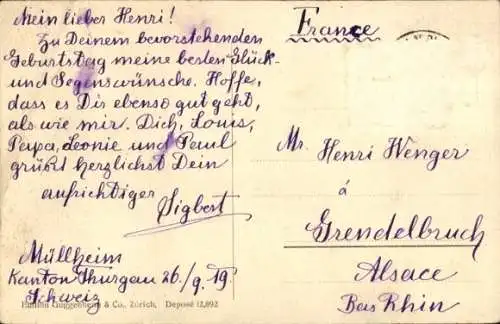 Mein lieber Henri!
Zu Deinem bevorstehenden
Geburtstag meine besten Glück-
und Segenswünsche. Hoffe,
dass es Dir ebenso gut geht,
als wie mir. Dich, Louis,
Papa, Leonie und Paul
grüßt herzlichst Dein
aufrichtiger
Sigbert
Müllheim
Kanton Thurgau 26./9. 19.
Schweiz
Guggenheim & Co., Zürich, Deposé 12,892
France
Mr. Henri Wenger
á
Grendelbruch
Alsace
Bas Rhin